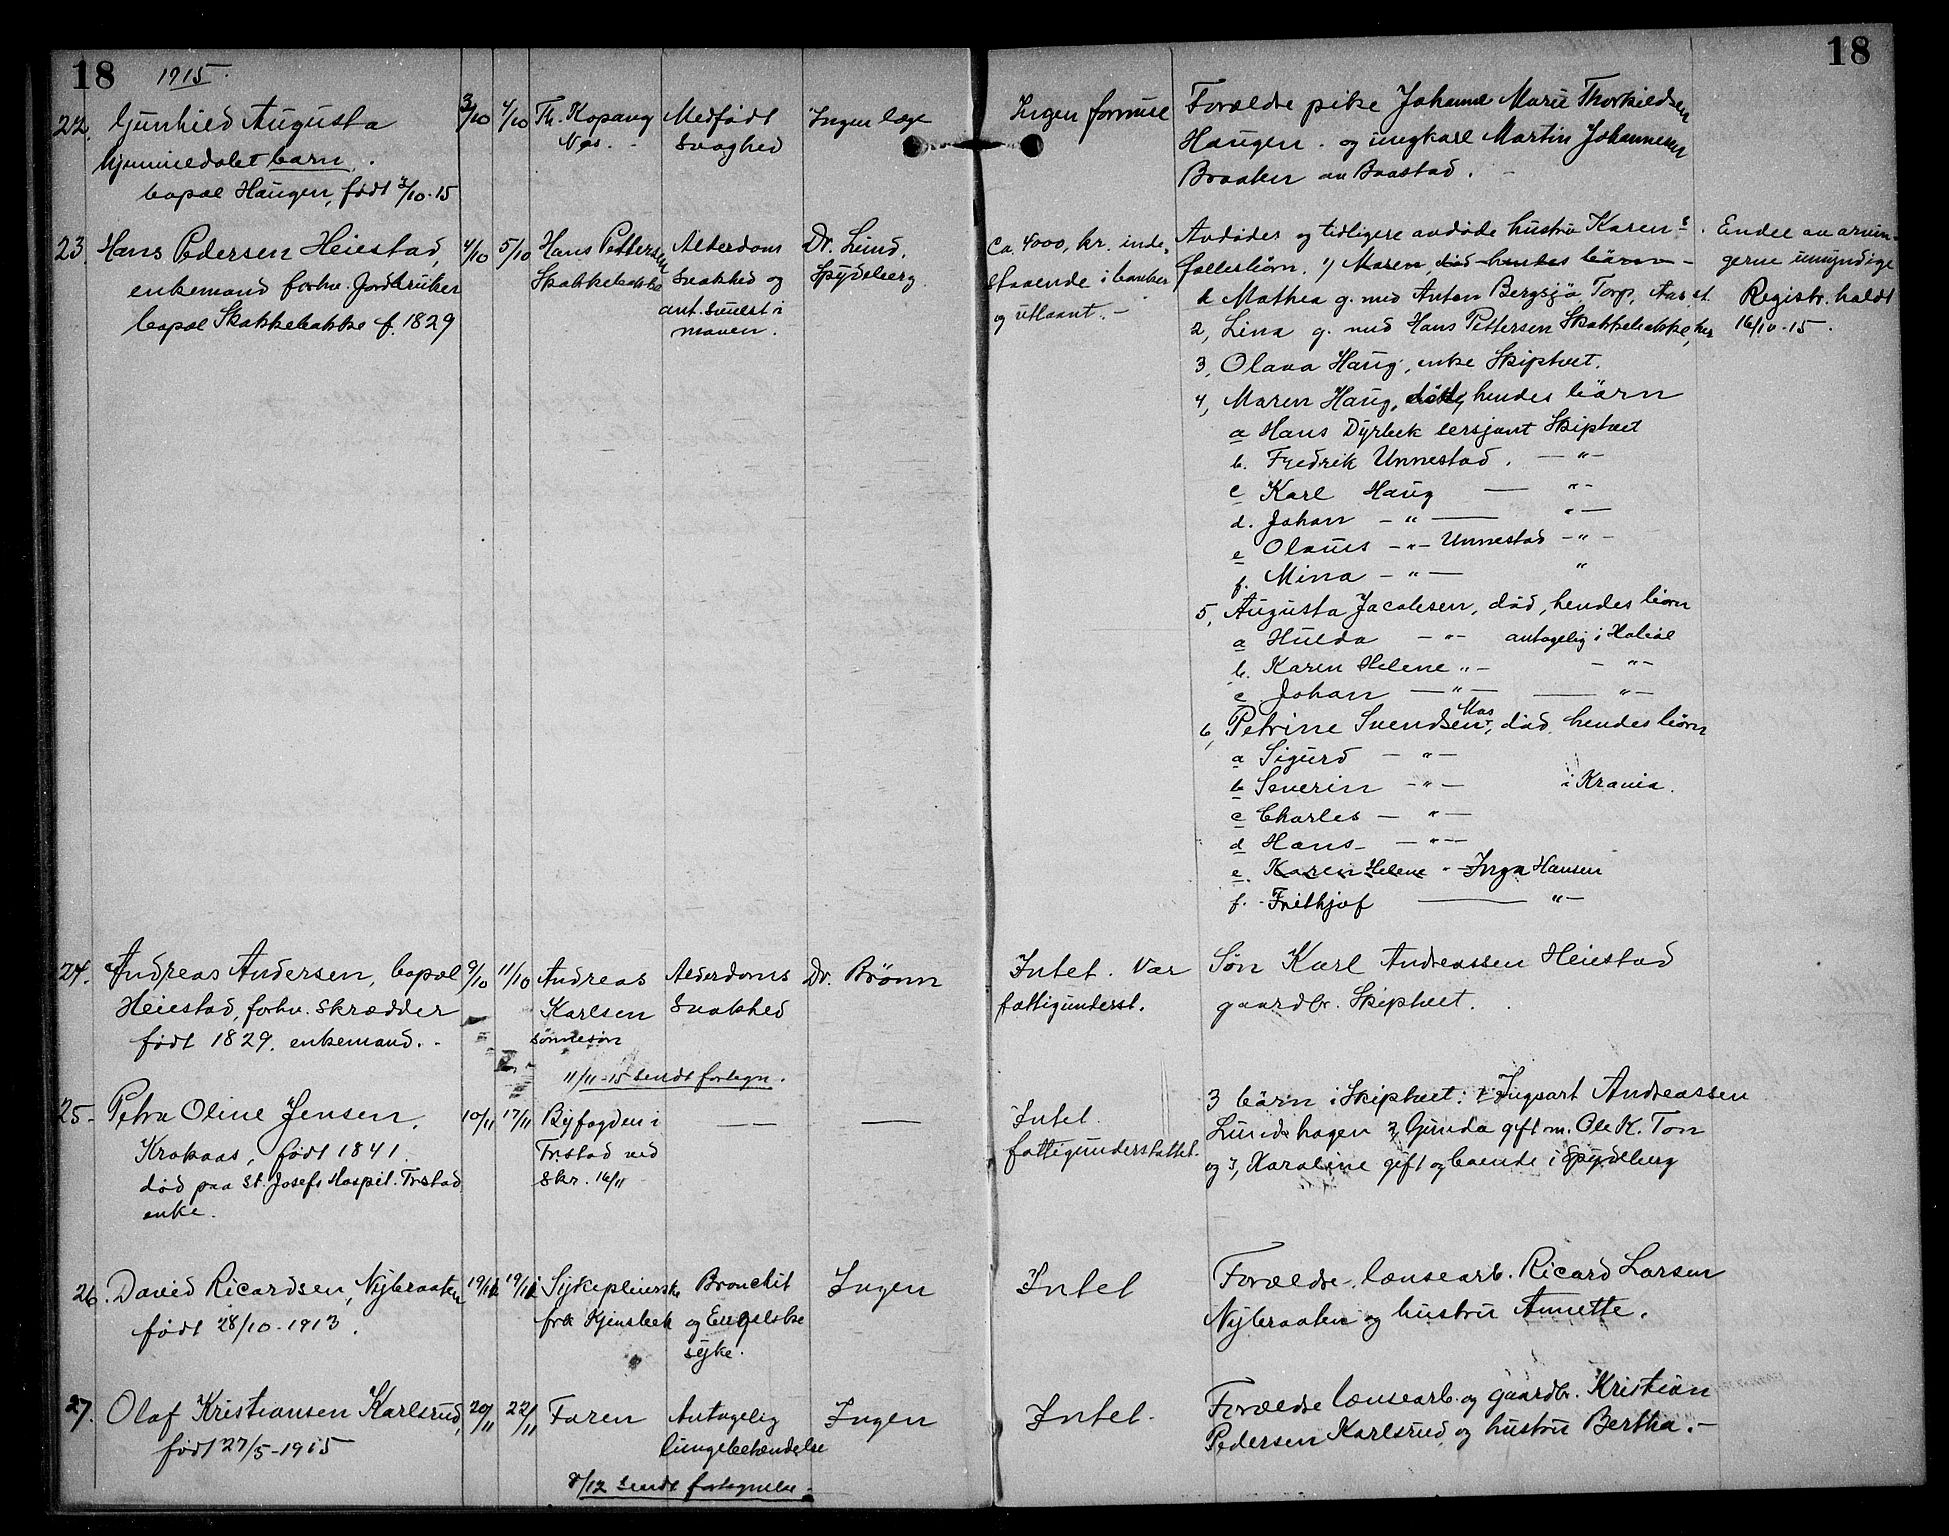 18 1915. 18
22. Gunhild Augusta 3/10 4/10 Th. Kopang Medfødt Ingen læge Ingen formue Forældre pike Johanne Marie Thorkildsen
hjemmedøbt barn. Nøs. - Svaghed Haugen. og ungkarl Martin Johannesen
bopæl Haugen, født 3/10-15 Braaken av Baastad. -
23. Hans Pedersen Heiestad, 4/10 5/10 Hans Pettersen Alderdoms Dr. Lund. Ca. 4000, kr. inde- Avdødes og tidligere avdøde hustru Karens Endel av arvin-
enkemand forhv. Jordbruker Skakkebakke Svakhed og Spydeberg staaende i banker fællesbørn. 1) Maren, død hendes børn - gerne umyndige
bopæl Skakkebakke f. 1829 ant. svulst i og utlaant. - 1, Mathea g. med Anton Bergsjø Torp, Aas st. Registr. holdt
maven. 2, Lina g. med Hans Pettersen Skakkebakke, her 16/10-15.
3, Olava Haug, enke Skiptvet.
4, Maren Haug, død, hendes børn
a Hans Dyrbek sersjant Skiptvet
b. Fredrik Unnestad. - " -
c Karl Haug — " -
d. Johan - " — " —
e Olaus - " - Unnestad - " -
f. Mina - " — "
5, Augusta Jacobsen, død, hendes børn
a Hulda - " - antagelig i Hobøl
b. Karen Helene " - - " -
c Johan — " — — " —
6, Petrine Svendsen Mos, død, hendes børn
a Sigurd - " -
b Severin - " - i Krania.
c Charles - " -
d Hans - " -
e. Karen Helene " - Inga Hansen
f. Frithjof — " -
24. Andreas Andersen, bopæl 9/10 11/10 Andreas Alderdoms Dr. Brønn Intet. Var Søn Karl Andreassen Heiestad
Heiestad, forhv. skrædder Karlsen Svakhed fattigunderst. gaardbr. Skiptvet.
født 1829. enkemand. - sønnesøn
11/11-15 sendt fortegn.
25. Petra Oline Jensen, 10/11 17/11 Byfogden i — — Intet. 3 børn i Skiptvet: 1, Ingvart Andreassen
Krokaas, født 1841. Fr.stad ved fattigunderstøttet. Lundshagen 2, Gunda gift m. Ole K. Ton
død paa St. Josefs Hospit. Fr.stad Skr. 16/11 og 3, Karoline gift og boende i Spydeberg
enke.
26. David Ricardsen, Nybraaten 19/11 19/11 Sykepleierske Bronchit Ingen Intet Forældre, lænsearb. Ricard Larsen
født 28/10-1913. frk Kjensbek og Engelske Nybraaten og hustru Annette.
syke.
27. Olaf Kristiansen Karlsrud, 20/11 22/11 Faren Antagelig Ingen Intet. Forældre lænsearb. og gaardbr. Kristian
født 27/5-1915 lungebetændelse Pedersen Karlsrud og hustru Bertha. -
8/12 sendt fortegnelse.